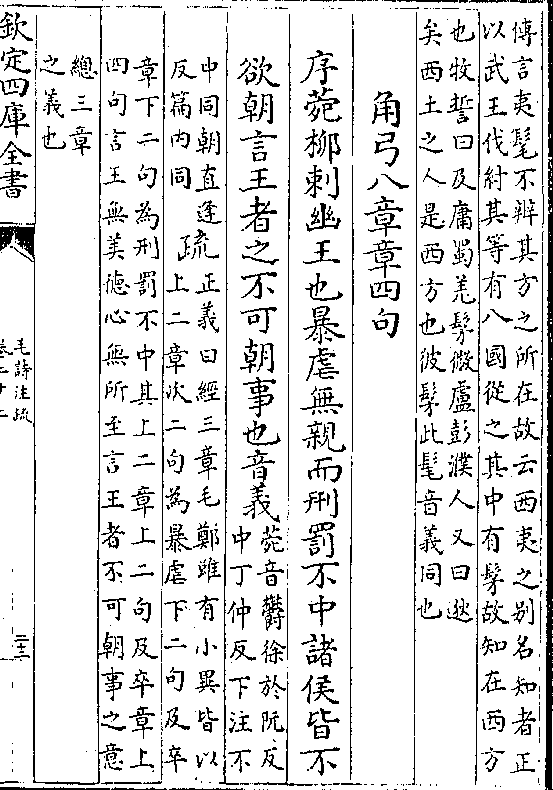 傳言夷髦不辨其方之所在故云西夷之别名知者正
以武王伐紂其等有八國從之其中有髳故知在西方
也牧誓曰及庸蜀羌髳微盧彭濮人又曰逖
矣西土之人是西方也彼髳此髦音義同也
角弓八章章四句
序菀柳刺幽王也暴虐無親而刑罰不中諸侯皆不
欲朝言王者之不可朝事也音義
菀音鬱徐於阮反
中丁仲反下注不
中同朝直遥
反篇内同
疏
正義曰經三章毛鄭雖有小異皆以
上二章次二句為暴虐下二句及卒
章下二句為刑罰不中其上二章上二句及卒章上
四句言王無美德心無所至言王者不可朝事之意
總三章
之義也
欽定四庫全書
毛詩注疏
卷二十二
二十三